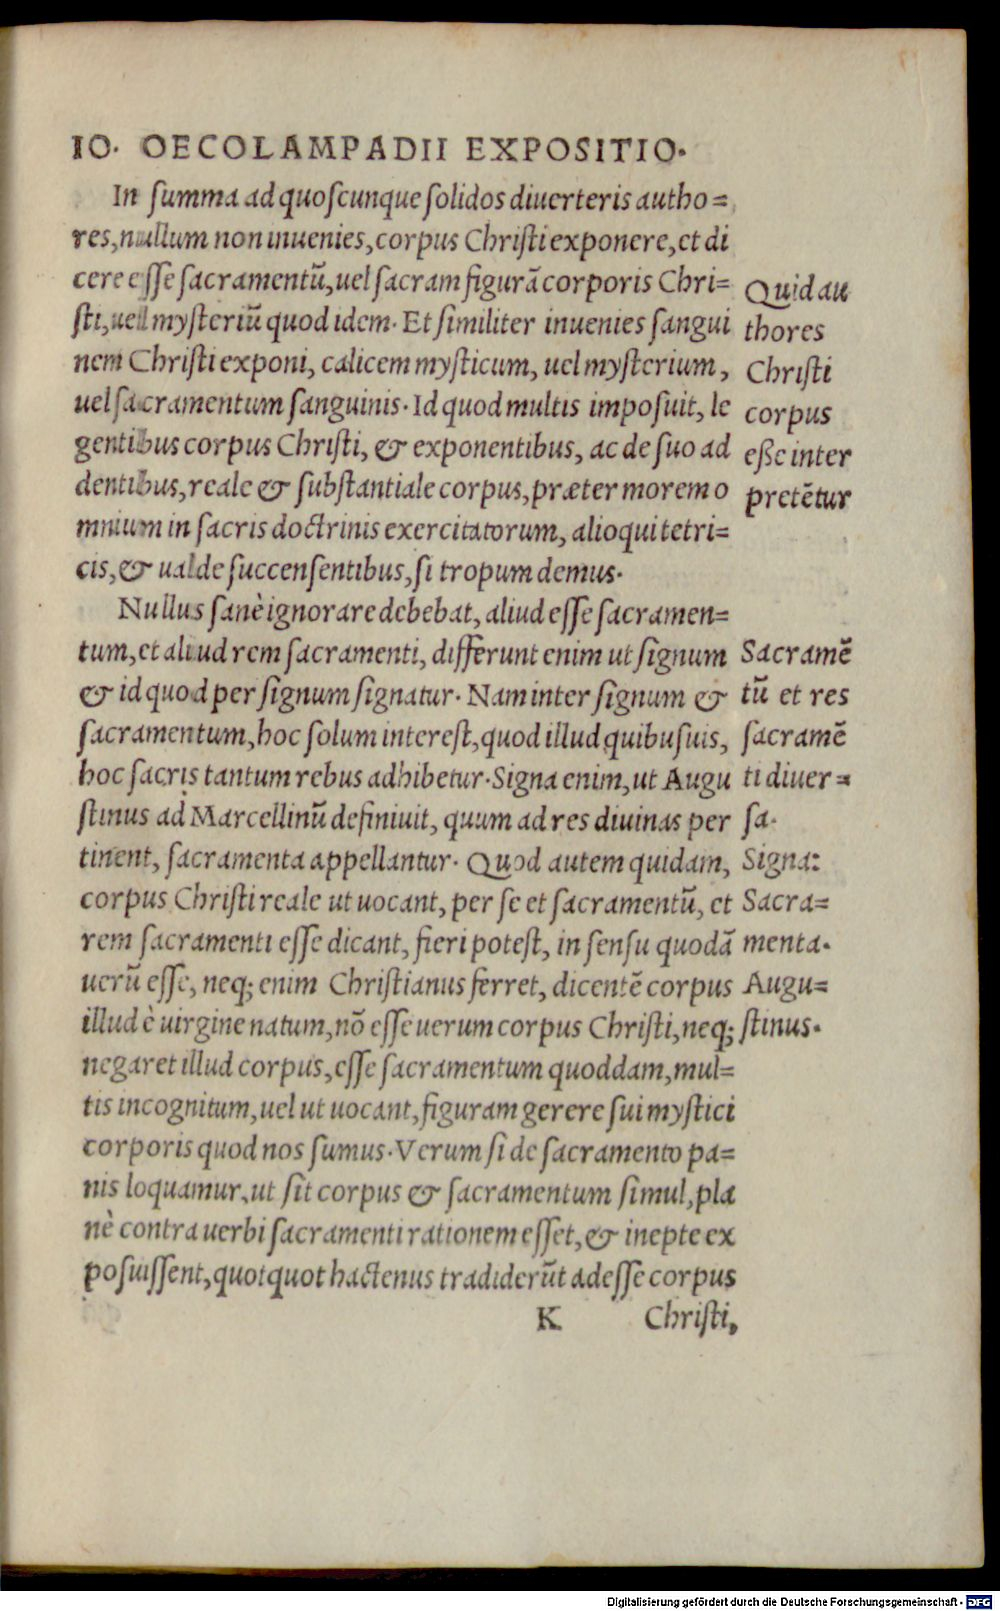 IO. OECOLAMPADII EXPOSITIO.
In ſumma ad quoſcunque ſolidos diuerteris autho=
res, nullum non inuenies, corpus Chriſti exponere, et di
cere eſſe ſacramentū, uel ſacram figurā corporis Chri=
ſti, uel myſteriū quod idem. Et ſimiliter inuenies ſangui
nem Chriſti exponi, calicem myſticum, uel myſterium,
uel ſacramentum ſanguinis. Id quod multis impoſuit, le
gentibus corpus Chriſti, & exponentibus, ac de ſuo ad
dentibus, reale & ſubſtantiale corpus, præter morem o
mnium in ſacris doctrinis exercitatorum, alioqui tetri=
cis, & ualde ſuccenſentibus, ſi tropum demus.
Quid au
thores
Chriſti
corpus
eſſe inter
pretētur
Nullus ſanè ignorare debebat, aliud eſſe ſacramen=
tum, et aliud rem ſacramenti, differunt enim ut ſignum
& id quod per ſignum ſignatur. Nam inter ſignum &
ſacramentum, hoc ſolum intereſt, quod illud quibuſuis,
hoc ſacris tantum rebus adhibetur. Signa enim, ut Augu
ſtinus ad Marcellinū definiuit, quum ad res diuinas per
tinent, ſacramenta appellantur. Quod autem quidam,
corpus Chriſti reale ut uocant, per ſe et ſacramentū, et
rem ſacramenti eſſe dicant, fieri poteſt, in ſenſu quodā
uerū eſſe, neq; enim Chriſtianus ferret, dicentē corpus
illud è uirgine natum, nō eſſe uerum corpus Chriſti, neq;
negaret illud corpus, eſſe ſacramentum quoddam, mul=
tis incognitum, uel ut uocant, figuram gerere ſui myſtici
corporis quod nos ſumus. Verum ſi de ſacramento pa=
nis loquamur, ut ſit corpus & ſacramentum ſimul, pla
nè contra uerbi ſacramenti rationem eſſet, & inepte ex
poſuiſſent, quotquot hactenus tradiderūt adeſſe corpus
Sacramē
tū et res
ſacramē
ti diuer=
ſa.
Signa:
Sacra=
menta.
Augu=
ſtinus.
K Chriſti,
Digitalisierung gefördert durch die Deutsche Forschungsgemeinschaft - DFG